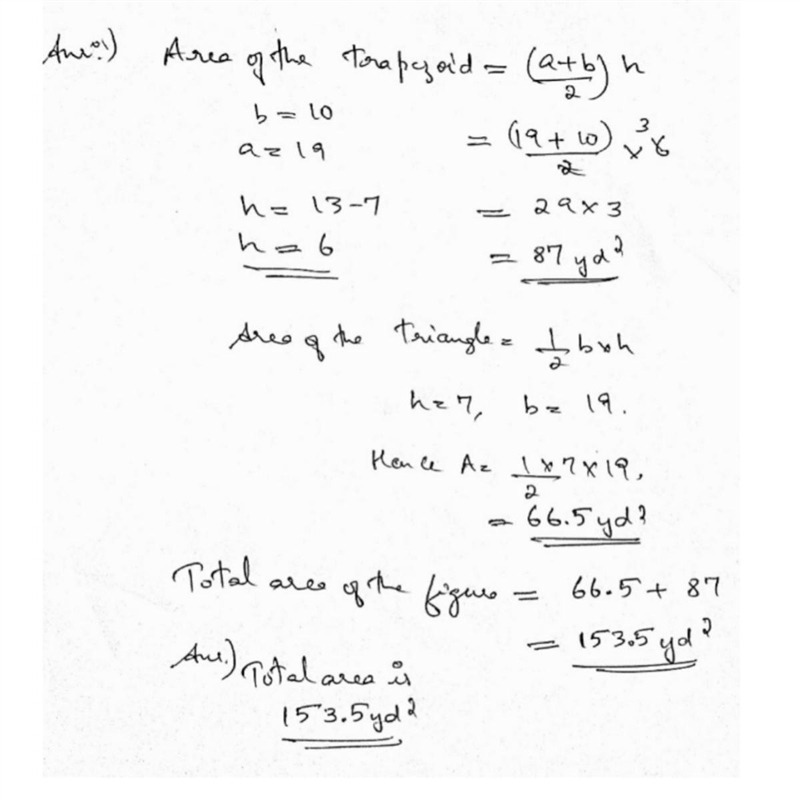 Ans:) Area of the trapezoid = (a+b)/2 h
b = 10
a = 19 = (19 + 10)/2 × 6 3
h = 13-7 = 29×3
h = 6 = 87 yd²
Area of the triangle = 1/2 b×h
h=7, b= 19.
Hence A= 1/2 ×7×19,
= 66.5 yd²
Total area of the figure = 66.5 + 87
= 153.5 yd²
Ans.) Total area is
153.5yd²